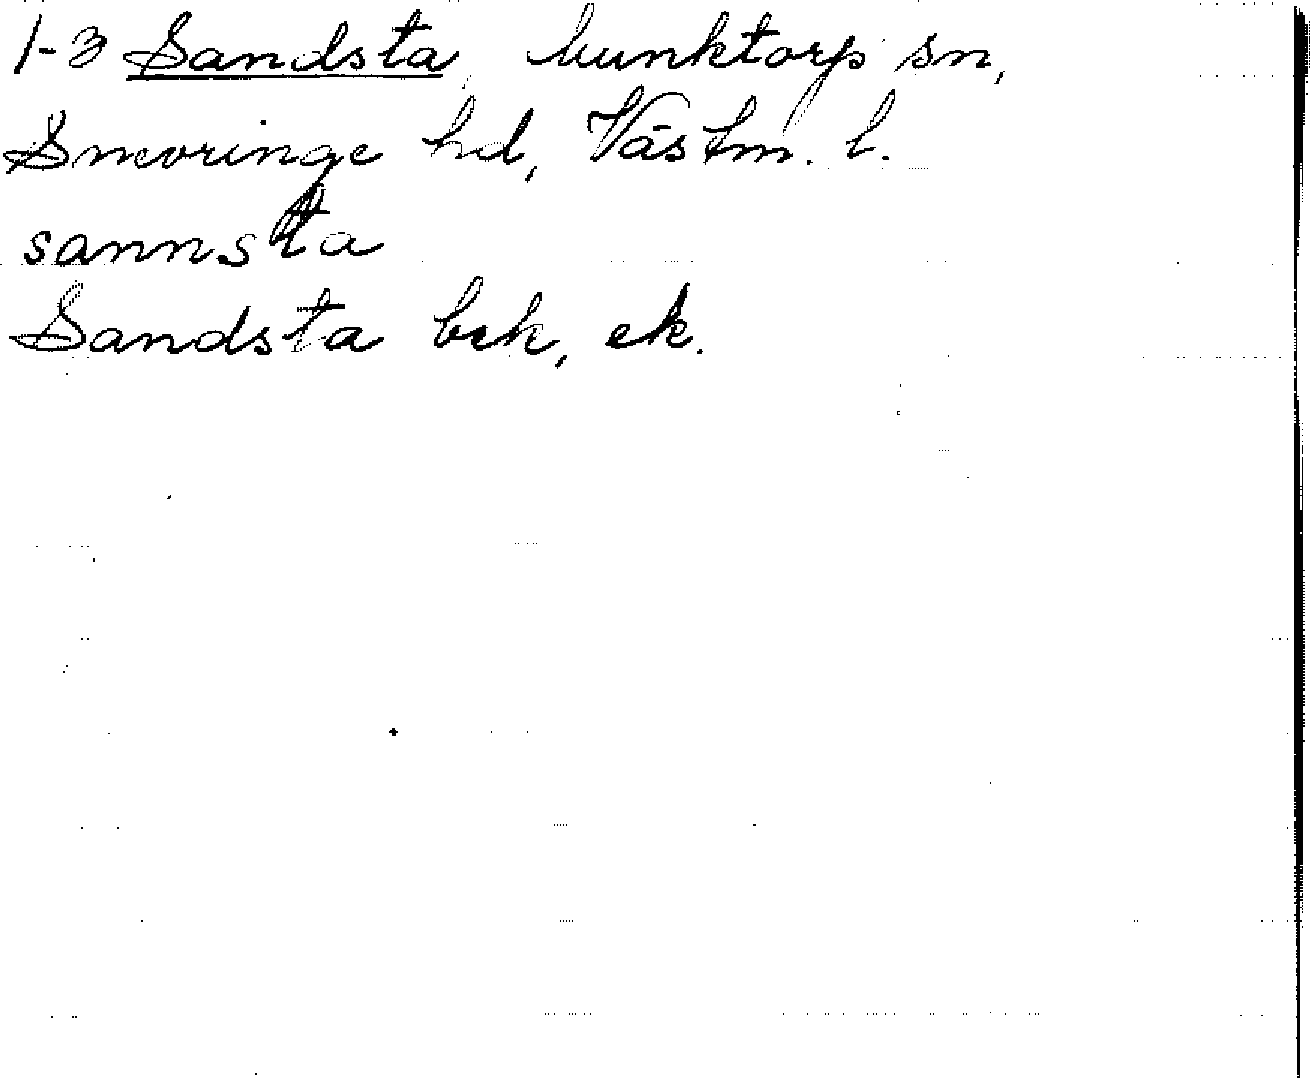 1-3 Sandsta Munktorp sn,
Snevringe hd, Västm. l.
sannsta
Sandsta bek, ek.